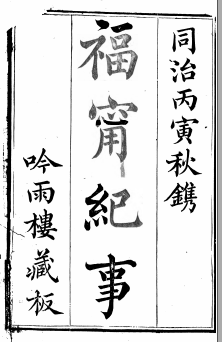 同治丙寅秋鐫
福甯紀事
吟雨樓藏板